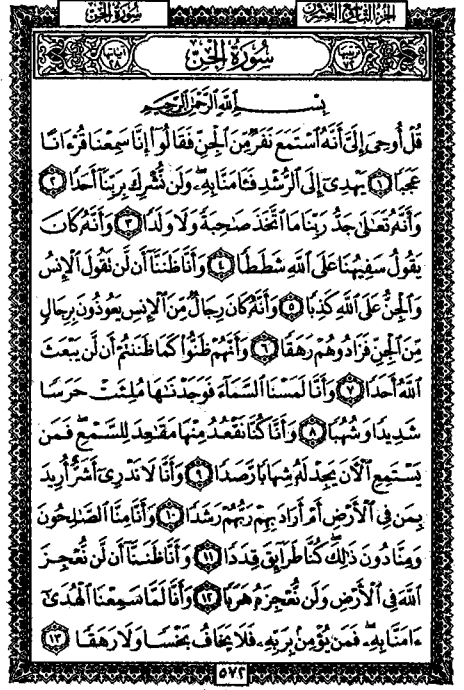 سُورَةُ الجِنِّ
الجُزْءُ التَّاسِعُ وَالعِشْرُونَ
سُورَةُ الجِنِّ
بِسْمِ اللَّهِ الرَّحْمَٰنِ الرَّحِيمِ
قُلْ أُوحِيَ إِلَيَّ أَنَّهُ اسْتَمَعَ نَفَرٌ مِّنَ الْجِنِّ فَقَالُوا إِنَّا سَمِعْنَا قُرْءَانًا
عَجَبًا ١ يَهْدِي إِلَى الرُّشْدِ فَـَٔامَنَّا بِهِ وَلَن نُّشْرِكَ بِرَبِّنَا أَحَدًا ٢
وَأَنَّهُ تَعَالَىٰ جَدُّ رَبِّنَا مَا اتَّخَذَ صَاحِبَةً وَلَا وَلَدًا ٣ وَأَنَّهُ كَانَ
يَقُولُ سَفِيهُنَا عَلَى اللَّهِ شَطَطًا ٤ وَأَنَّا ظَنَنَّا أَن لَّن تَقُولَ الْإِنسُ
وَالْجِنُّ عَلَى اللَّهِ كَذِبًا ٥ وَأَنَّهُ كَانَ رِجَالٌ مِّنَ الْإِنسِ يَعُوذُونَ بِرِجَالٍ
مِّنَ الْجِنِّ فَزَادُوهُمْ رَهَقًا ٦ وَأَنَّهُمْ ظَنُّوا كَمَا ظَنَنتُمْ أَن لَّن يَبْعَثَ
اللَّهُ أَحَدًا ٧ وَأَنَّا لَمَسْنَا السَّمَاءَ فَوَجَدْنَاهَا مُلِئَتْ حَرَسًا
شَدِيدًا وَشُهُبًا ٨ وَأَنَّا كُنَّا نَقْعُدُ مِنْهَا مَقَاعِدَ لِلسَّمْعِ فَمَن
يَسْتَمِعِ الْآنَ يَجِدْ لَهُ شِهَابًا رَّصَدًا ٩ وَأَنَّا لَا نَدْرِي أَشَرٌّ أُرِيدَ
بِمَن فِي الْأَرْضِ أَمْ أَرَادَ بِهِمْ رَبُّهُمْ رَشَدًا ١٠ وَأَنَّا مِنَّا الصَّالِحُونَ
وَمِنَّا دُونَ ذَٰلِكَ كُنَّا طَرَائِقَ قِدَدًا ١١ وَأَنَّا ظَنَنَّا أَن لَّن نُّعْجِزَ
اللَّهَ فِي الْأَرْضِ وَلَن نُّعْجِزَهُ هَرَبًا ١٢ وَأَنَّا لَمَّا سَمِعْنَا الْهُدَىٰ
ءَامَنَّا بِهِ فَمَن يُؤْمِن بِرَبِّهِ فَلَا يَخَافُ بَخْسًا وَلَا رَهَقًا ١٣
٥٧٢